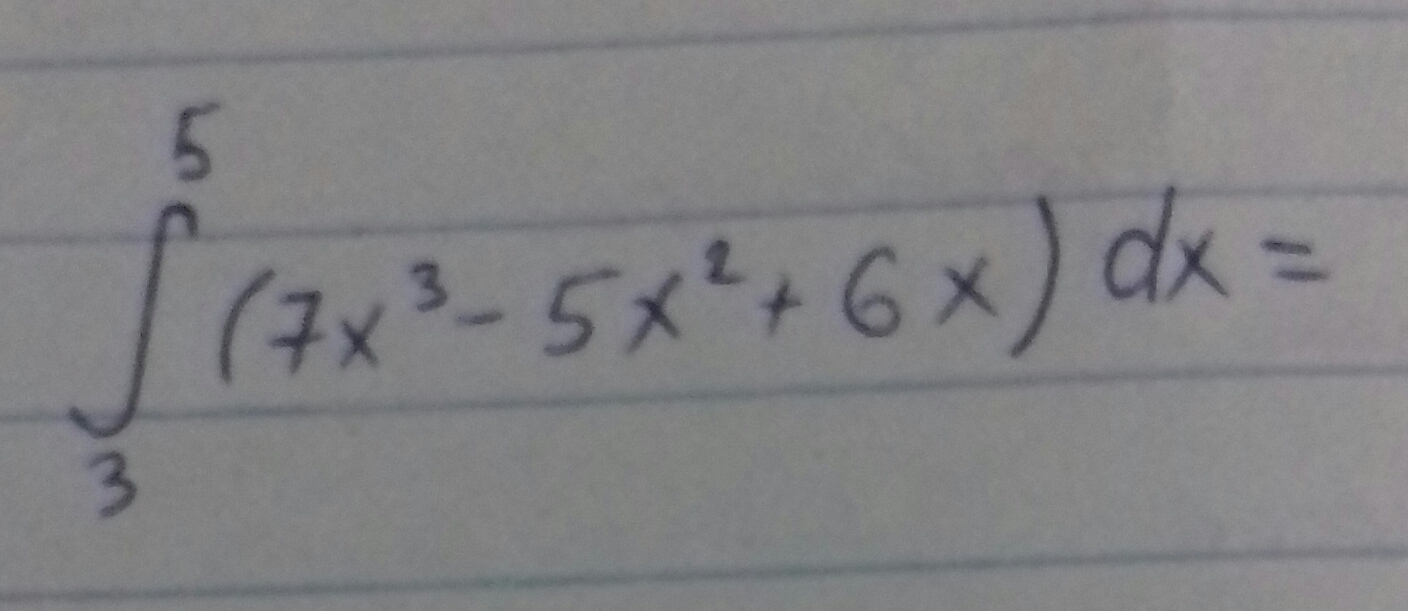 ∫₃⁵ (7x³ - 5x² + 6x) dx =